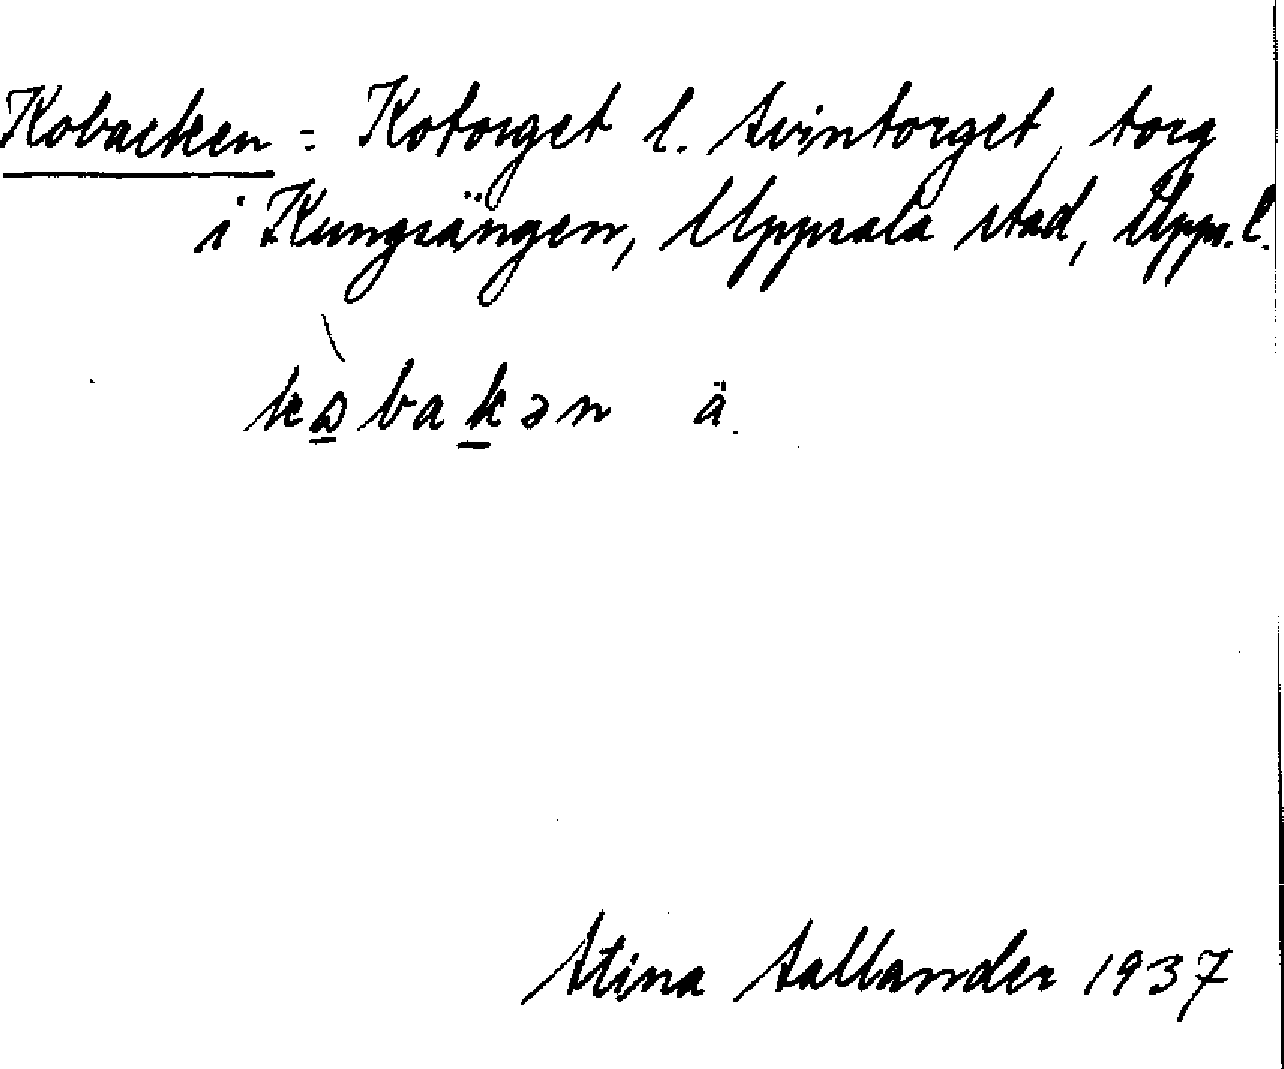 Kobacken = Kotorget l. Svintorget, torg
i Kungsängen, Uppsala stad, Upps. l.
kωbakən ä.
Stina Sallander 1937